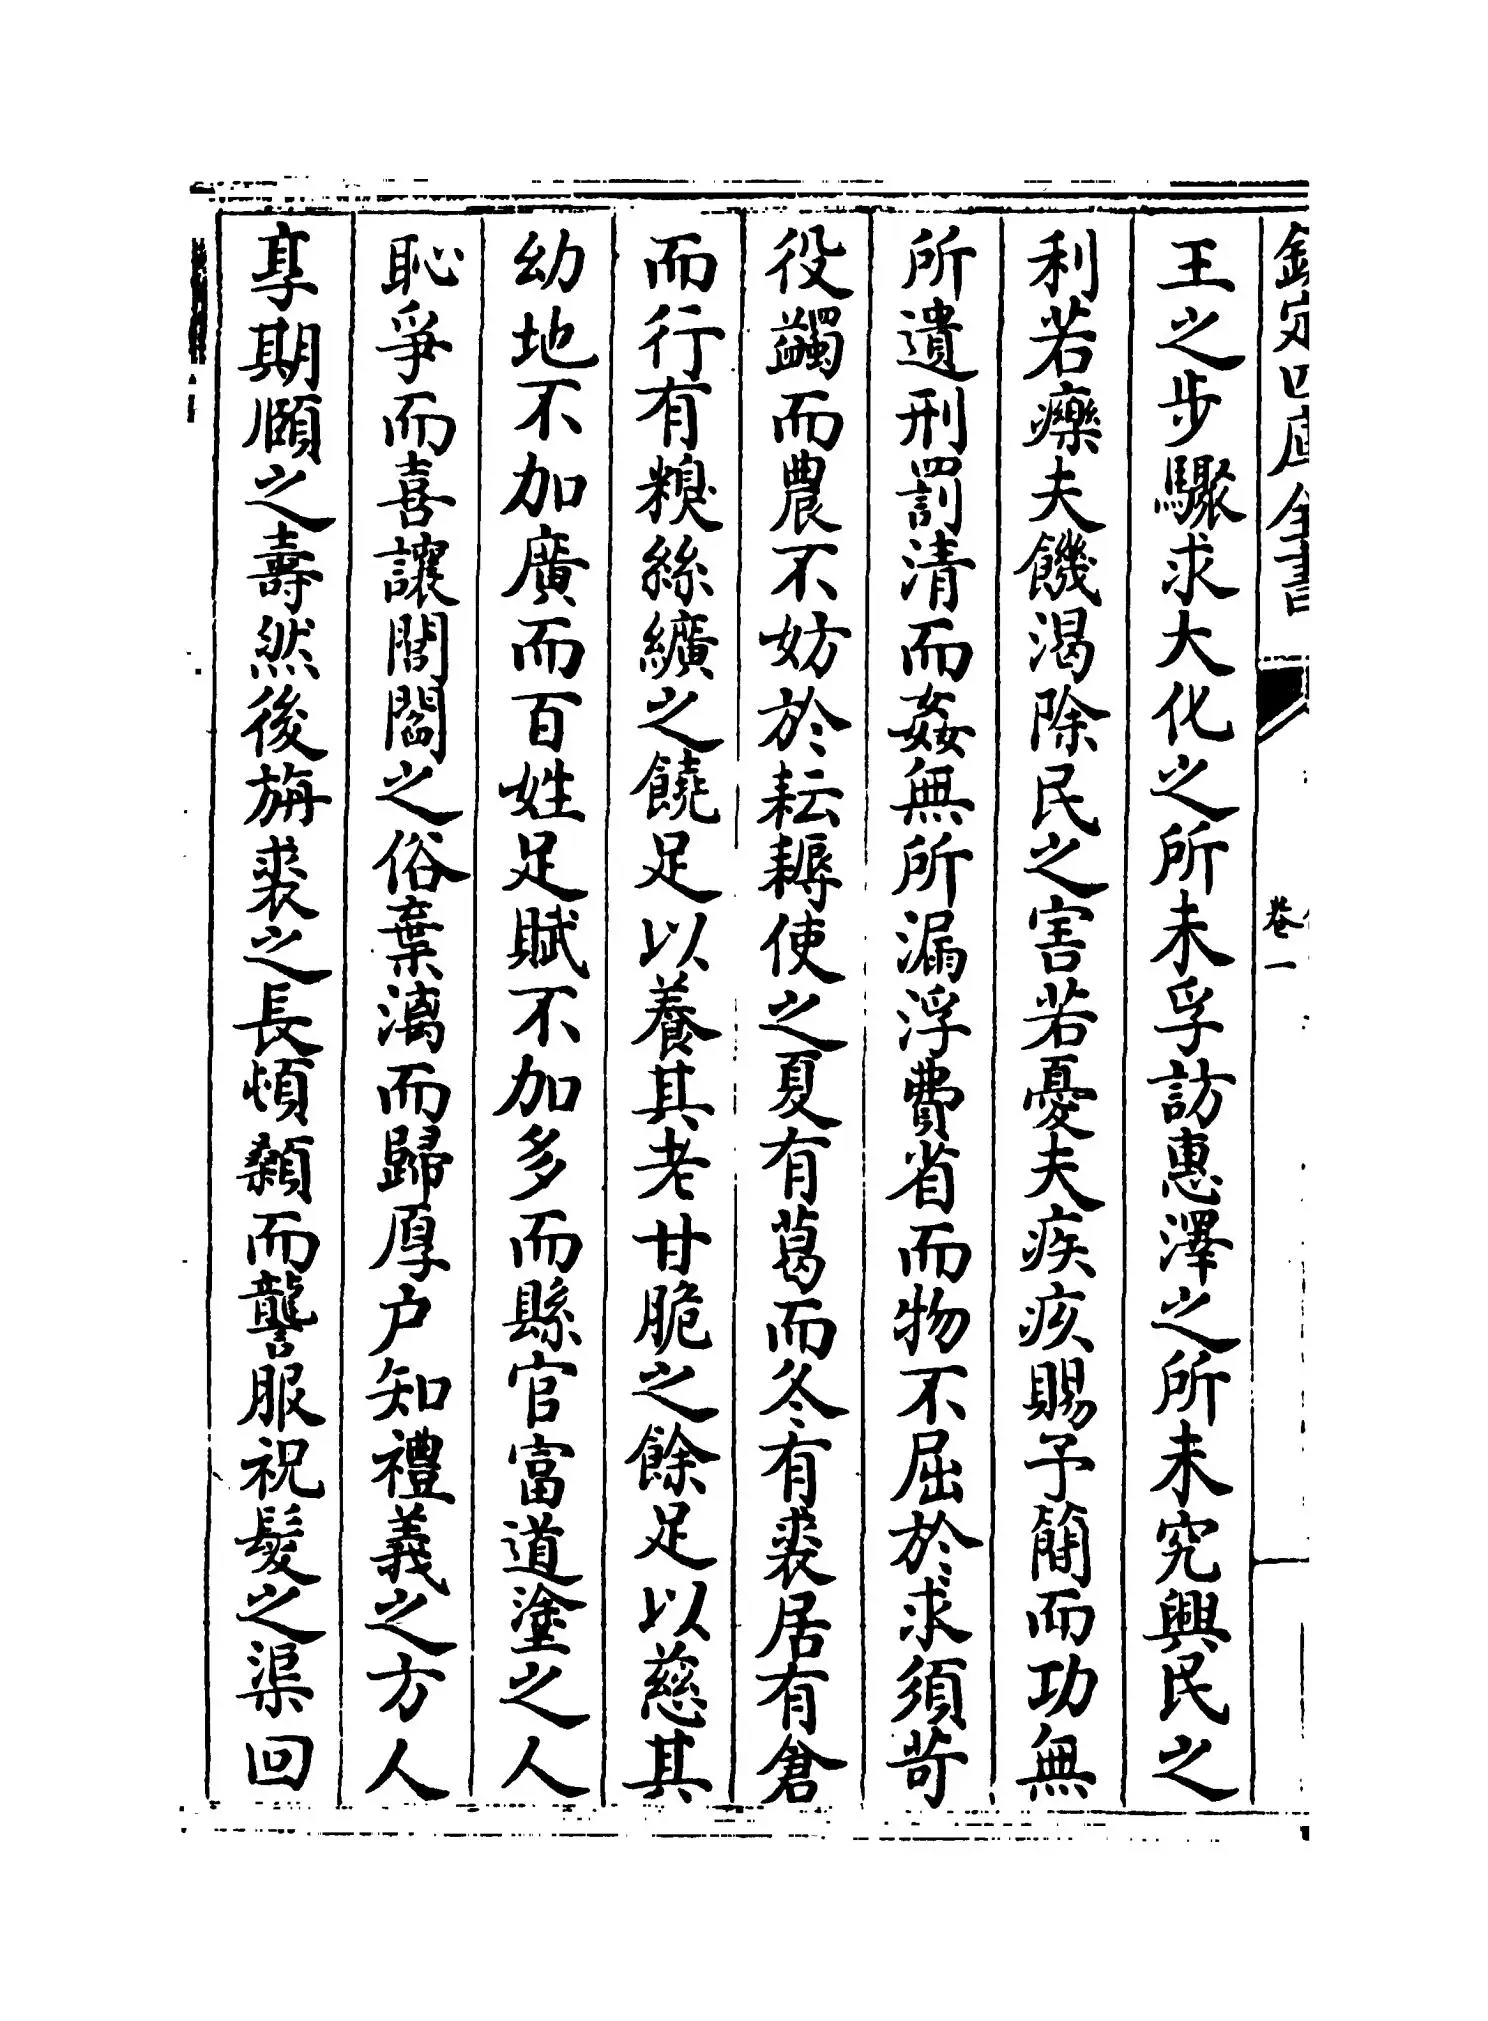 欽定四庫全書
卷一
王之步驟求大化之所未孚訪惠澤之所未究興民之
利若療夫饑渴除民之害若憂夫疾疢賜予簡而功無
所遺刑罰清而姦無所漏浮費省而物不屈於求須苛
役蠲而農不妨於耘耨使之夏有葛而冬有裘居有倉
而行有糗絲纊之饒足以養其老甘脆之餘足以慈其
幼地不加廣而百姓足賦不加多而縣官富道塗之人
恥爭而喜讓閭閻之俗棄漓而歸厚户知禮義之方人
享期頤之壽然後旃裘之長頓顙而讋服祝髮之渠回